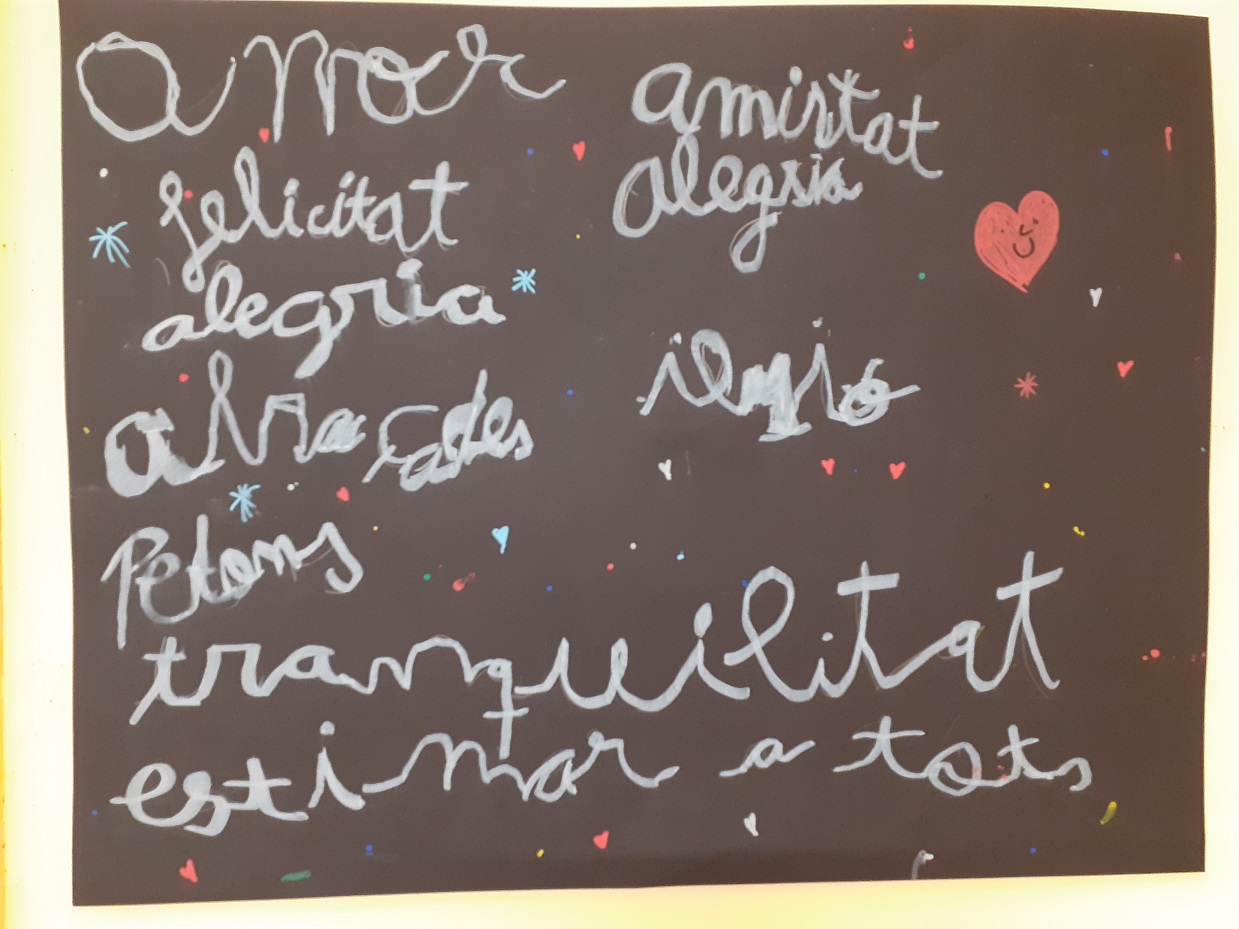 amor
felicitat
alegria
abraçades
Petons
amistat
alegria
tranquilitat
estimar a tots